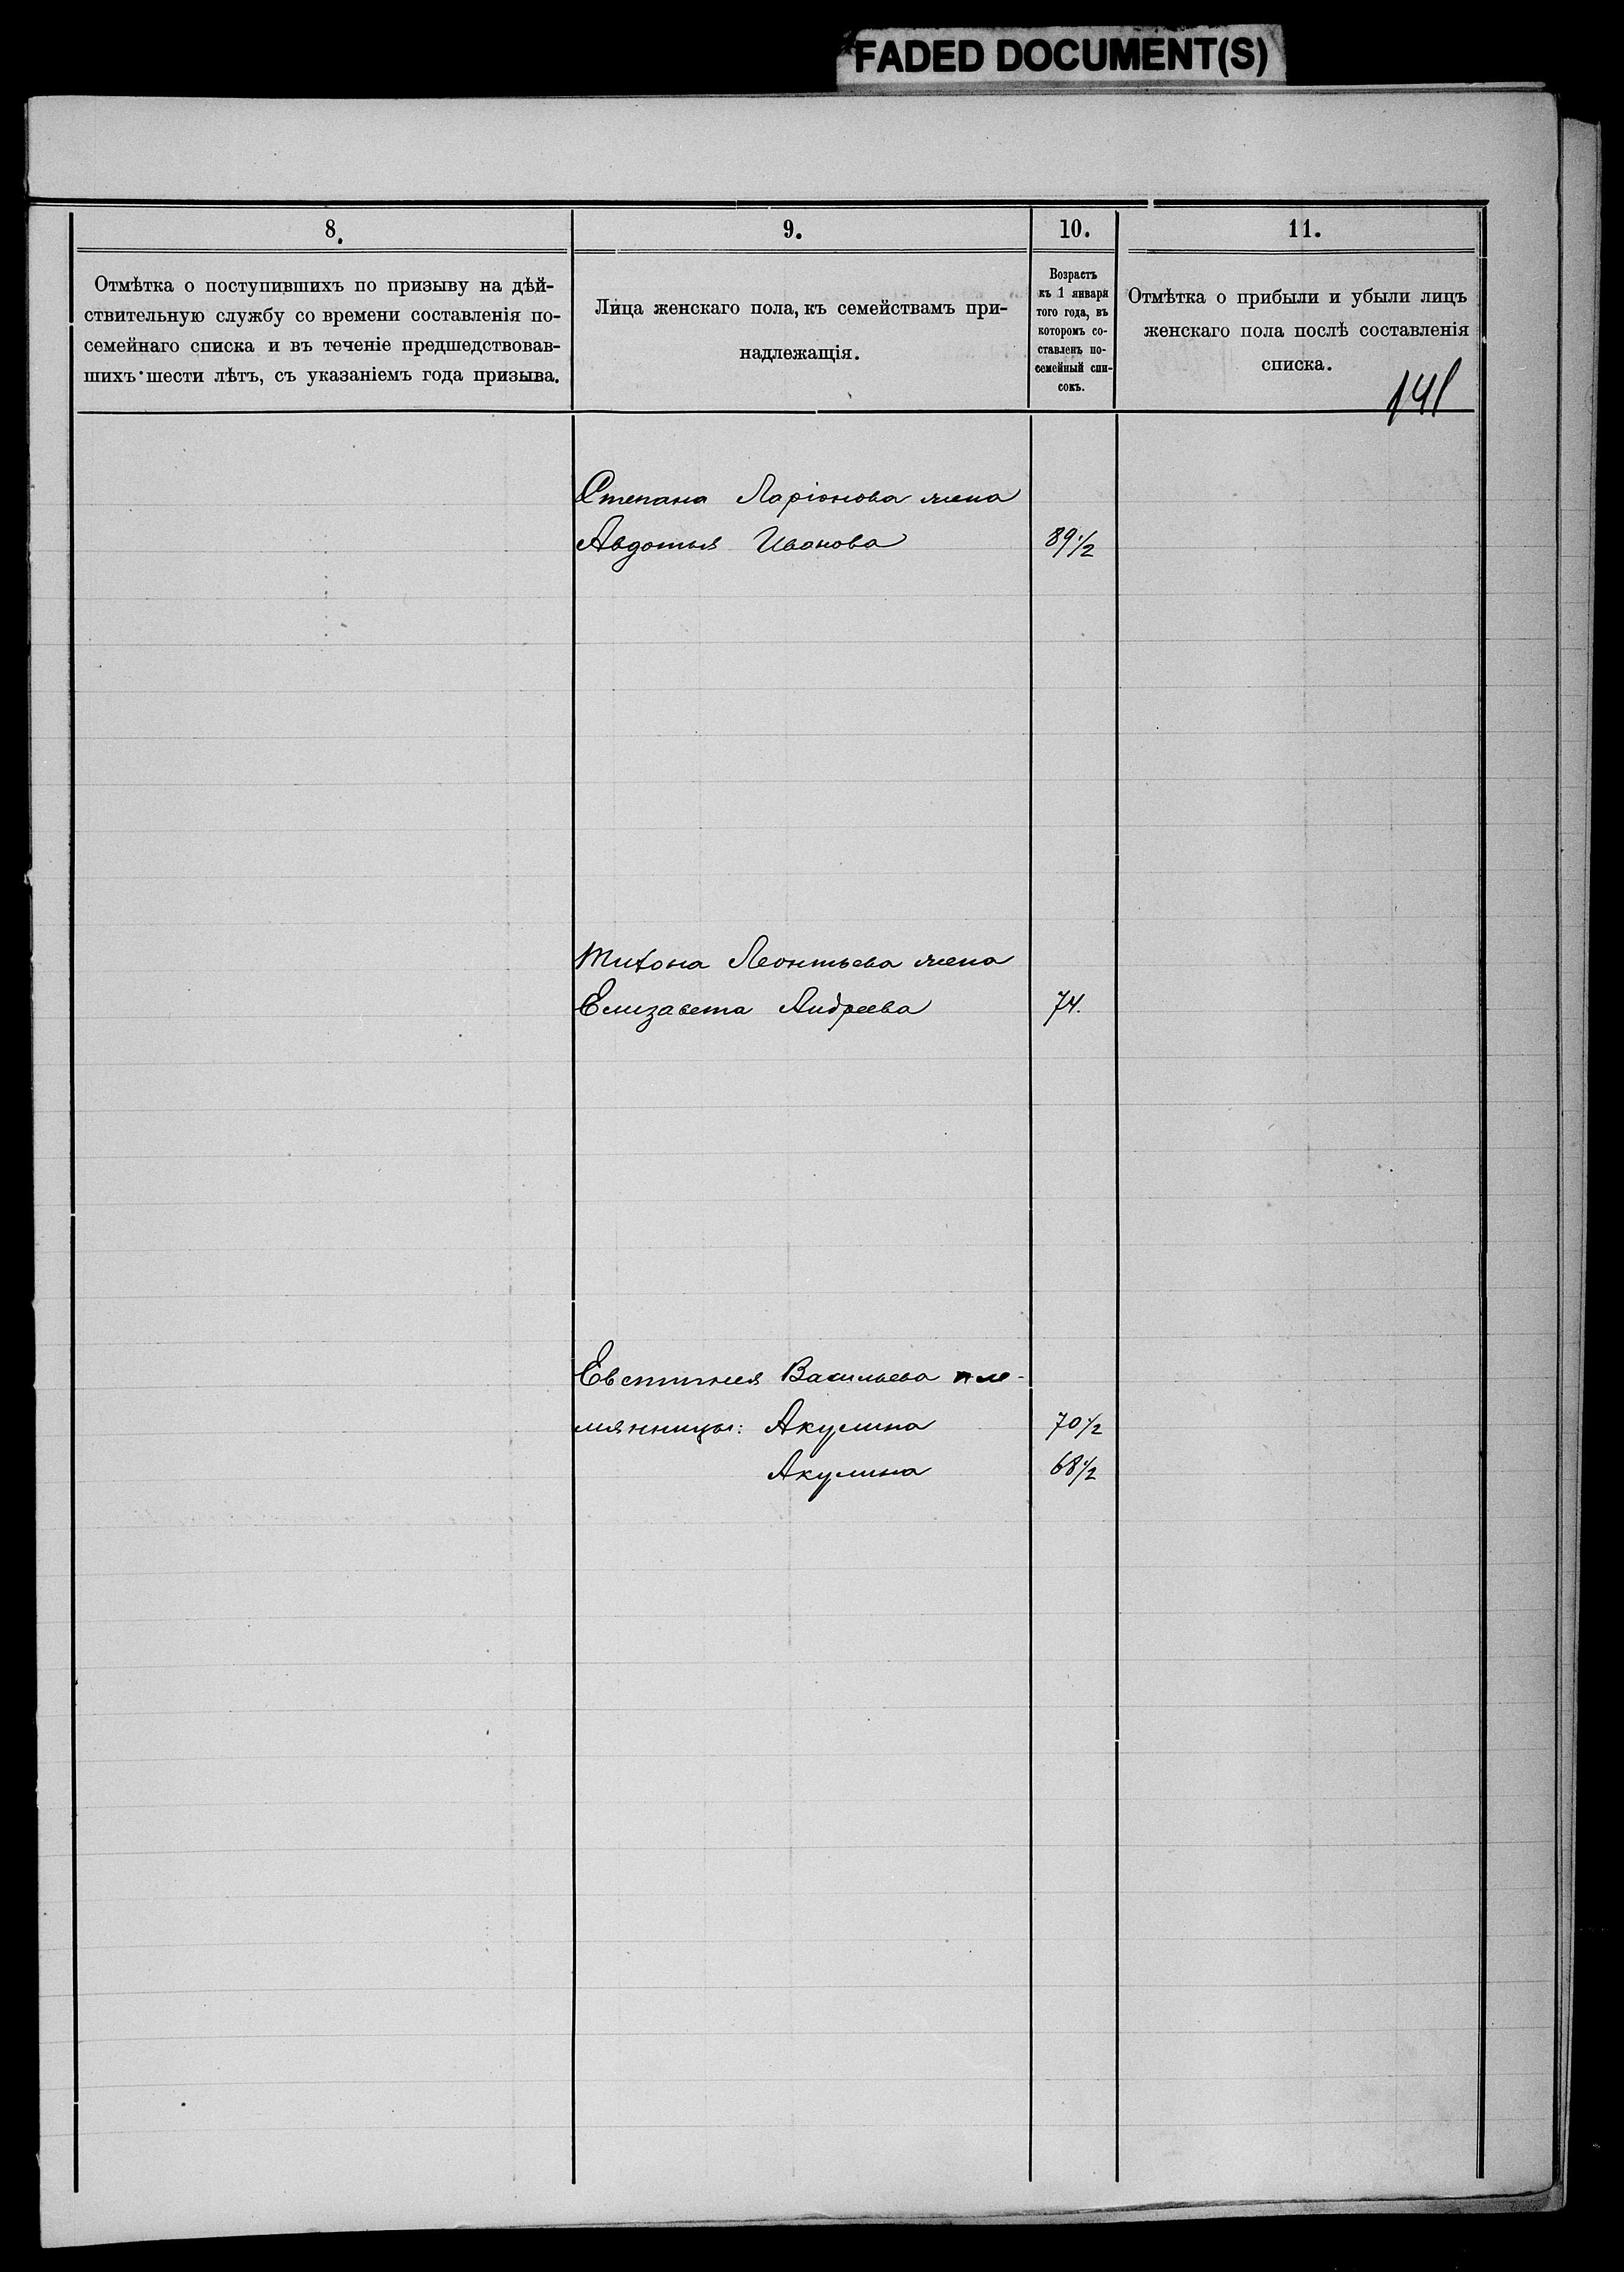 FADED DOCUMENT(S)
8.
9.
10.
11.
Отмѣтка о поступившихъ по призыву на дѣй-
ствительную службу со времени составленія по-
семейнаго списка и въ теченіе предшедствовав-
шихъ шести лѣтъ, съ указаніемъ года призыва.
Лица женскаго пола, къ семействамъ при-
надлежащія.
Возрастъ
къ 1 января
того года, въ
которомъ со-
ставленъ по-
семейный спи-
сокъ.
Отмѣтка о прибыли и убыли лицъ
женскаго пола послѣ составленія
списка.
141
Степана Ларіонова жена
Авдотья Иванова 89 1/2
Тихона Леонтьева жена
Елизавета Андреева 74.
Евстигнея Васильева пле-
мянницы: Акулина 70 1/2
Акулина 68 1/2